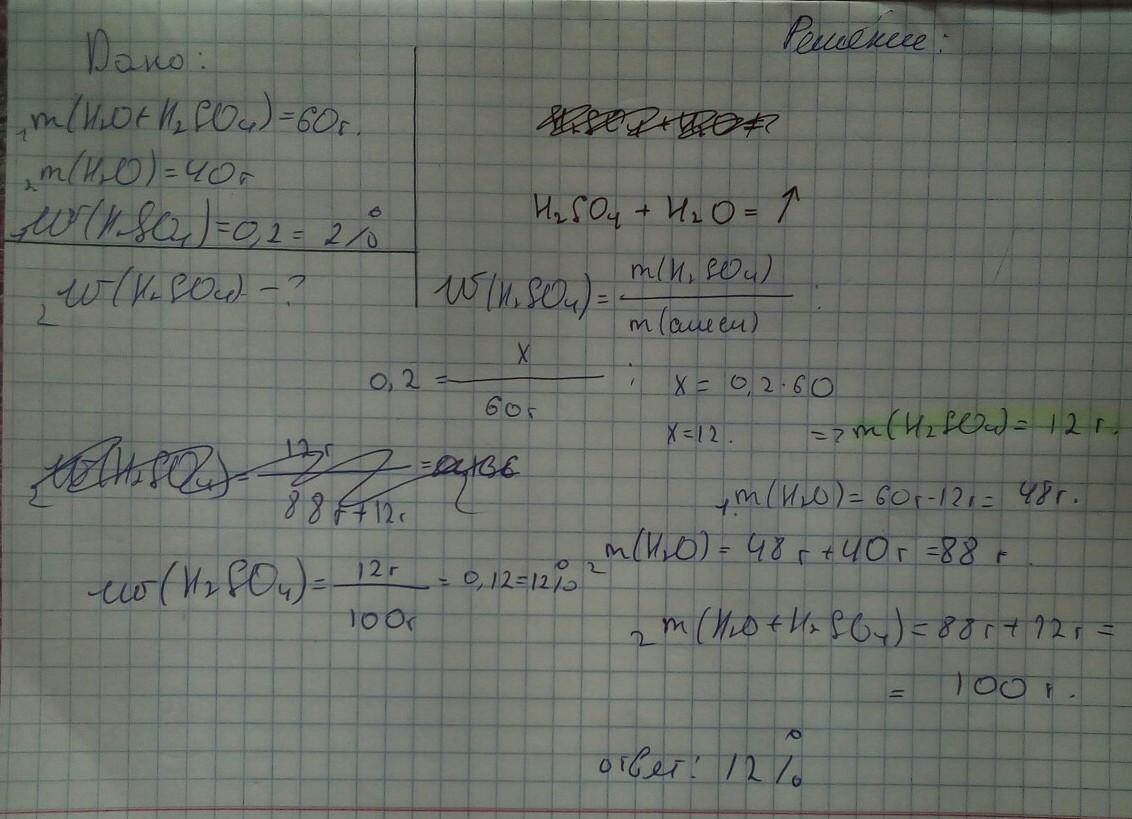 Дано:
1m(H2O+H2SO4)=60г.
2m(H2O)=40г
1w(H2SO4)=0,2= 2%
2w(H2SO4) - ?
Решение:
H2SO4 + H2O = ↑
w(H2SO4)= m(H2SO4) / m(смеси) ;
0,2 = x / 60г ; x = 0,2·60
x=12. => m(H2SO4)= 12 г.
1m(H2O)= 60г-12г= 48г.
2m(H2O)= 48г+40г=88 г
2m(H2O+H2SO4)=88г+12г=
= 100 г.
w(H2SO4)= 12г / 100г = 0,12=12%
ответ: 12%